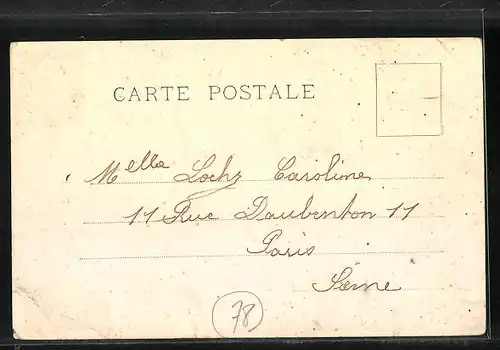 CARTE POSTALE
Melle Lochz Caroline
11 Rue Daubenton 11
Paris
Seine
78